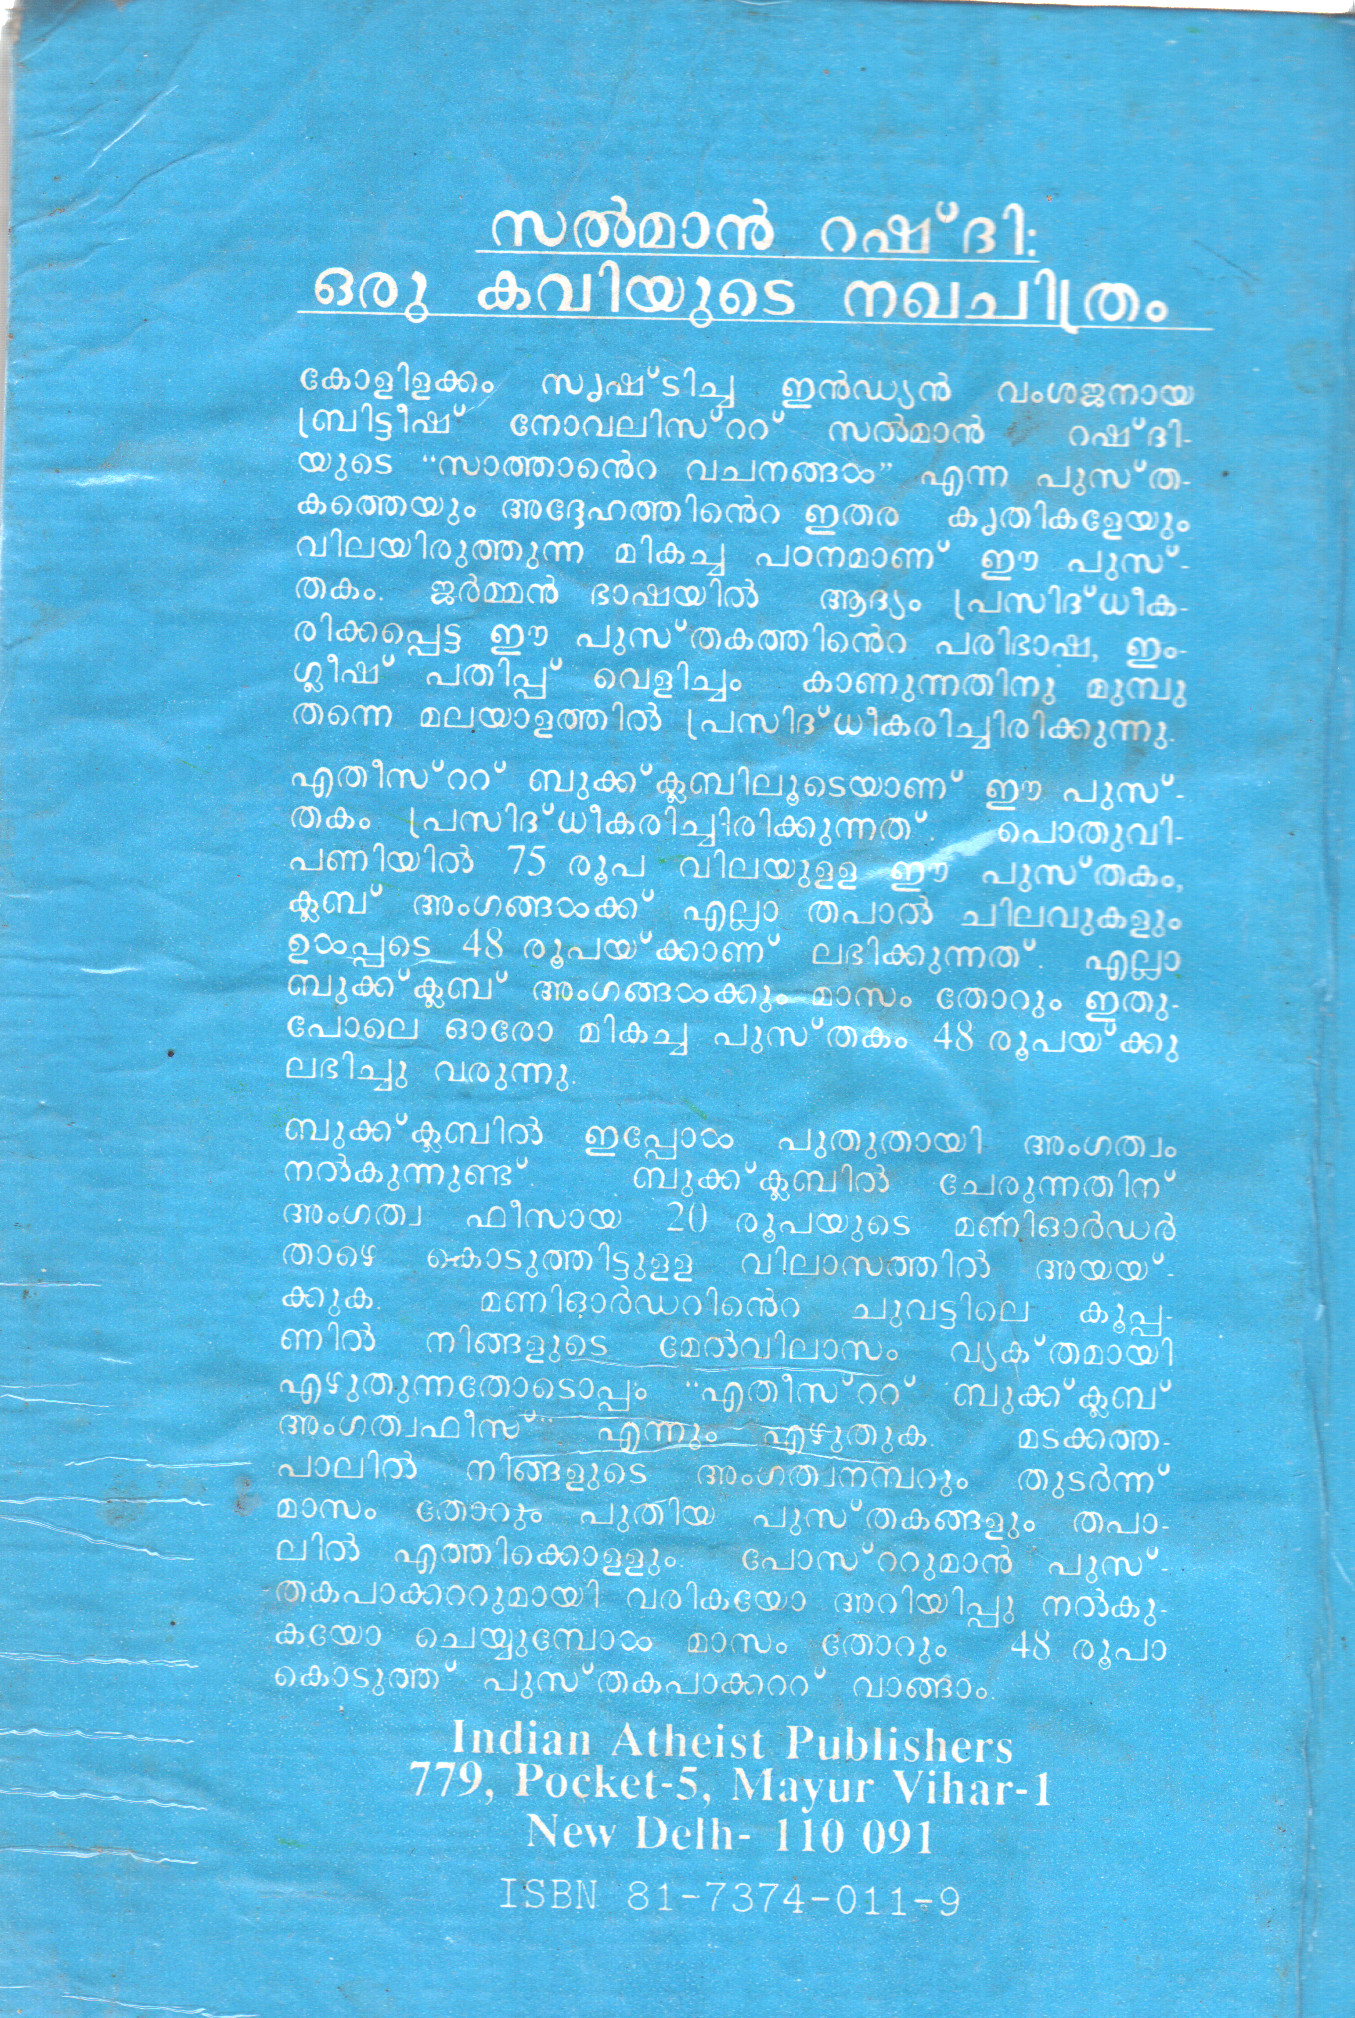 സൽമാൻ റഷ്ദി:
ഒരു കവിയുടെ നഖചിത്രം
കോളിളക്കം സൃഷ്ടിച്ച ഇൻഡ്യൻ വംശജനായ
ബ്രിട്ടീഷ് നോവലിസ്ററ് സൽമാൻ റഷ്ദി-
യുടെ “സാത്താൻെറ വചനങ്ങൾ” എന്ന പുസ്ത-
കത്തെയും അദ്ദേഹത്തിൻെറ ഇതര കൃതികളേയും
വിലയിരുത്തുന്ന മികച്ച പഠനമാണ് ഈ പുസ്-
തകം. ജർമ്മൻ ഭാഷയിൽ ആദ്യം പ്രസിദ്ധീക-
രിക്കപ്പെട്ട ഈ പുസ്തകത്തിൻെറ പരിഭാഷ, ഇം-
ഗ്ലീഷ് പതിപ്പ് വെളിച്ചം കാണുന്നതിനു മുമ്പു
തന്നെ മലയാളത്തിൽ പ്രസിദ്ധീകരിച്ചിരിക്കുന്നു.
എതീസ്ററ് ബുക്ക്ക്ലബിലൂടെയാണ് ഈ പുസ്-
തകം പ്രസിദ്ധീകരിച്ചിരിക്കുന്നത്. പൊതുവി-
പണിയിൽ 75 രൂപ വിലയുളള ഈ പുസ്തകം,
ക്ലബ് അംഗങ്ങൾക്ക് എല്ലാ തപാൽ ചിലവുകളും
ഉൾപ്പടെ 48 രൂപയ്ക്കാണ് ലഭിക്കുന്നത്. എല്ലാ
ബുക്ക്ക്ലബ് അംഗങ്ങൾക്കും മാസം തോറും ഇതു-
പോലെ ഓരോ മികച്ച പുസ്തകം 48 രൂപയ്ക്കു
ലഭിച്ചു വരുന്നു.
ബുക്ക്ക്ലബിൽ ഇപ്പോൾ പുതുതായി അംഗത്വം
നൽകുന്നുണ്ട്. ബുക്ക്ക്ലബിൽ ചേരുന്നതിന്
അംഗത്വ ഫീസായ 20 രൂപയുടെ മണിഓർഡർ
താഴെ കൊടുത്തിട്ടുളള വിലാസത്തിൽ അയയ്-
ക്കുക. മണിഓർഡറിൻെറ ചുവട്ടിലെ കൂപ്പ-
ണിൽ നിങ്ങളുടെ മേൽവിലാസം വ്യക്തമായി
എഴുതുന്നതോടൊപ്പം “എതീസ്ററ് ബുക്ക്ക്ലബ്
അംഗത്വഫീസ്” എന്നും എഴുതുക. മടക്കത്ത-
പാലിൽ നിങ്ങളുടെ അംഗത്വനമ്പറും തുടർന്ന്
മാസം തോറും പുതിയ പുസ്തകങ്ങളും തപാ-
ലിൽ എത്തിക്കൊളളും. പോസ്ററുമാൻ പുസ്-
തകപാക്കററുമായി വരികയോ അറിയിപ്പു നൽകു-
കയോ ചെയ്യുമ്പോൾ മാസം തോറും 48 രൂപാ
കൊടുത്ത് പുസ്തകപാക്കററ് വാങ്ങാം.
Indian Atheist Publishers
779, Pocket-5, Mayur Vihar-1
New Delh- 110 091
ISBN 81-7374-011-9